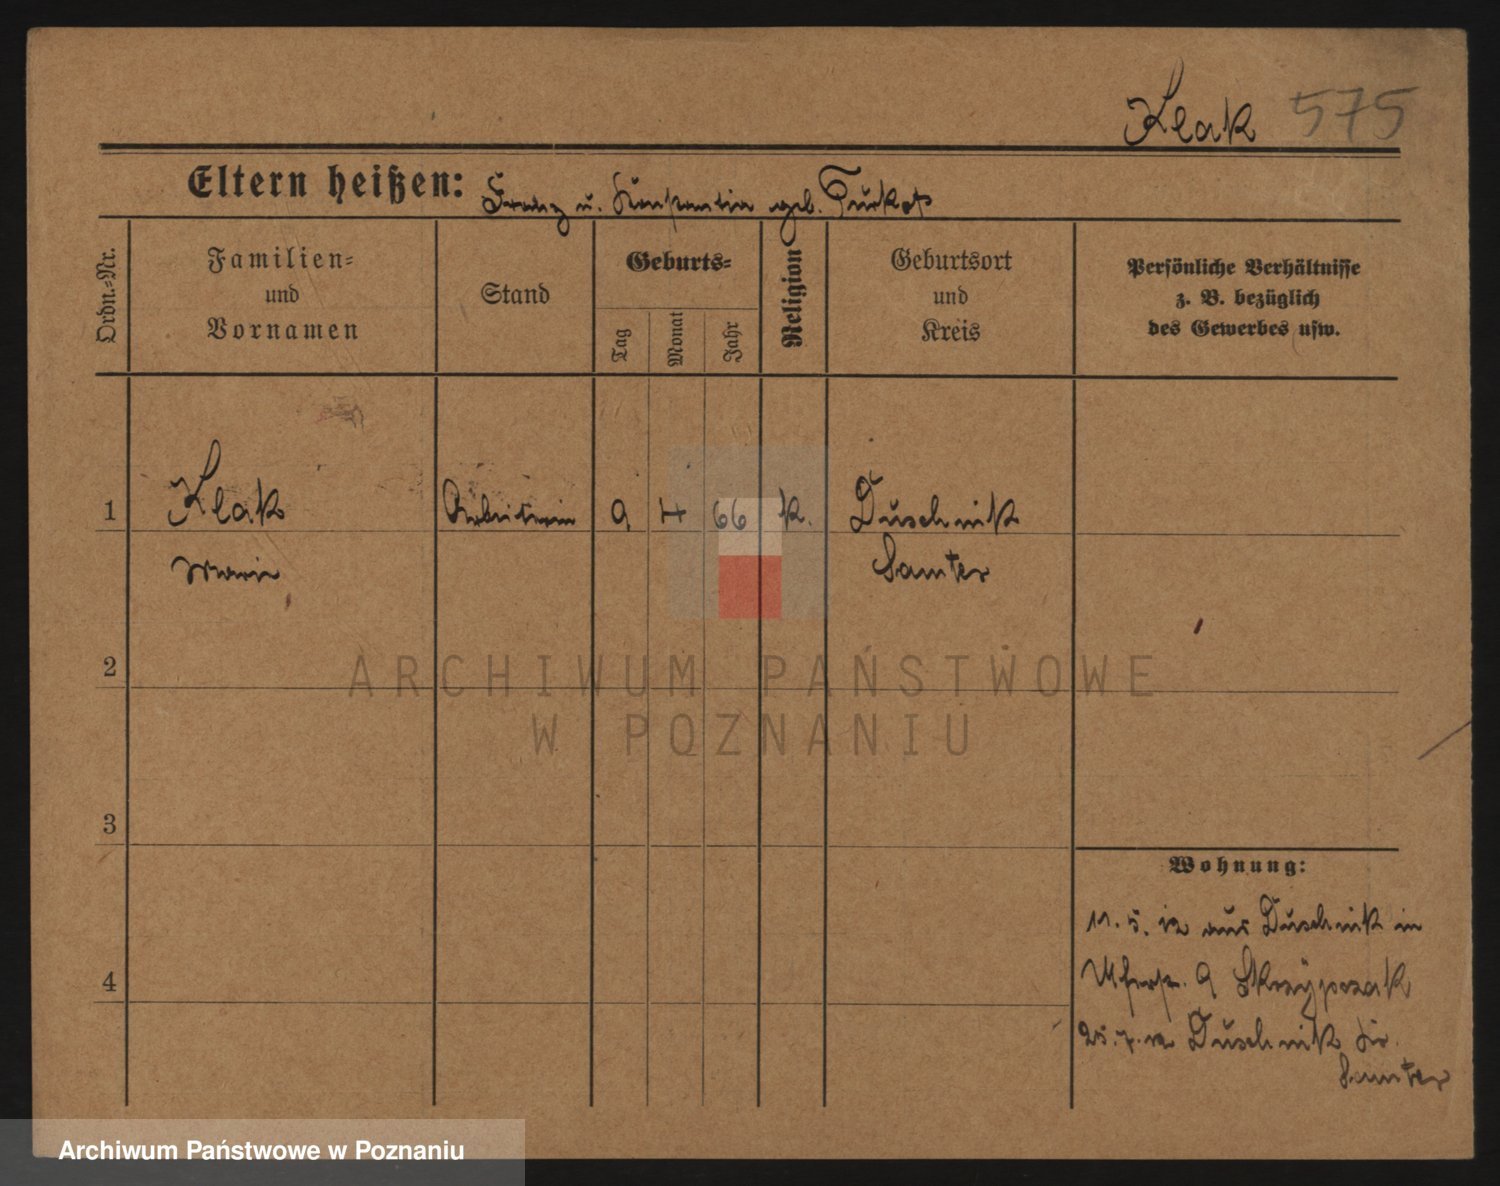 Kłak 575
Eltern heißen: Franz u. Konstantia geb. Turkot
Ordn.=Nr.
Familien=
und
Vornamen
Stand
Geburts=
Tag
Monat
Jahr
Religion
Geburtsort
und
Kreis
Persönliche Verhältnisse
z. B. bezüglich
des Gewerbes usw.
1 Kłak Arbeiterin 9 4 66 k. Duschnik
Marie Samter
2
3
4
Wohnung:
11. 5. 12 aus Duschnik in
9 Skrzypczak
25. 7. 12 Duschnik Kr.
Samter
ARCHIWUM PAŃSTWOWE
W POZNANIU
Archiwum Państwowe w Poznaniu